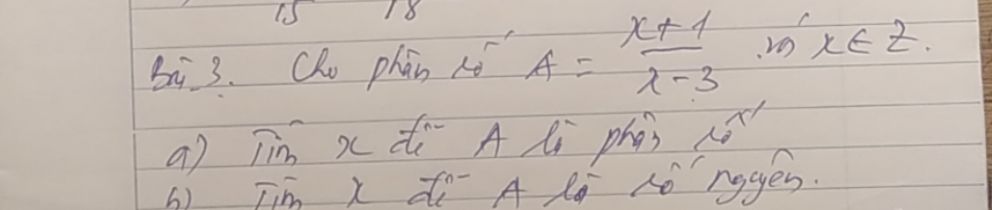 15 18
Bài 3. Cho phân số A = \frac{x+1}{x-3} với x ∈ Z.
a) Tìm x để A là phân số
b) Tìm x để A là số nguyên.